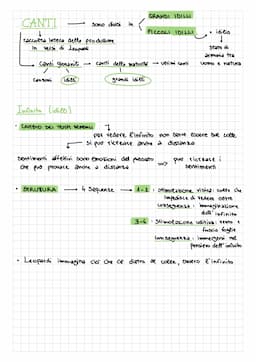 CANTI → sono divisi in
GRANDI IDILLI
PICCOLI IDILLI → idillio
raccolta lirica della produzione
in versi di Leopardi
stato di
armonia tra
uomo e natura
Canti giovanili → canti della maturità → ultimi canti
canzoni idilli grandi idilli
Infinito (idillio)
• CAMBIO DEI TEMPI VERBALI
per vedere l'infinito non serve essere sul colle,
si può ricreare anche a distanza
Sentimenti affettivi sono emozioni del passato → può ricreare i
che può provare anche a distanza sentimenti
• STRUTTURA → 4 Sequenze 1-2 Stimolazione visiva: colle che
impedisce di vedere oltre
conseguenza: immaginazione
dell'infinito
3-4 Stimolazione uditiva: vento e
fruscio foglie
conseguenza: immergersi nel
pensiero dell'infinito
• Leopardi immagina ciò che c'è dietro al colle, ovvero l'infinito